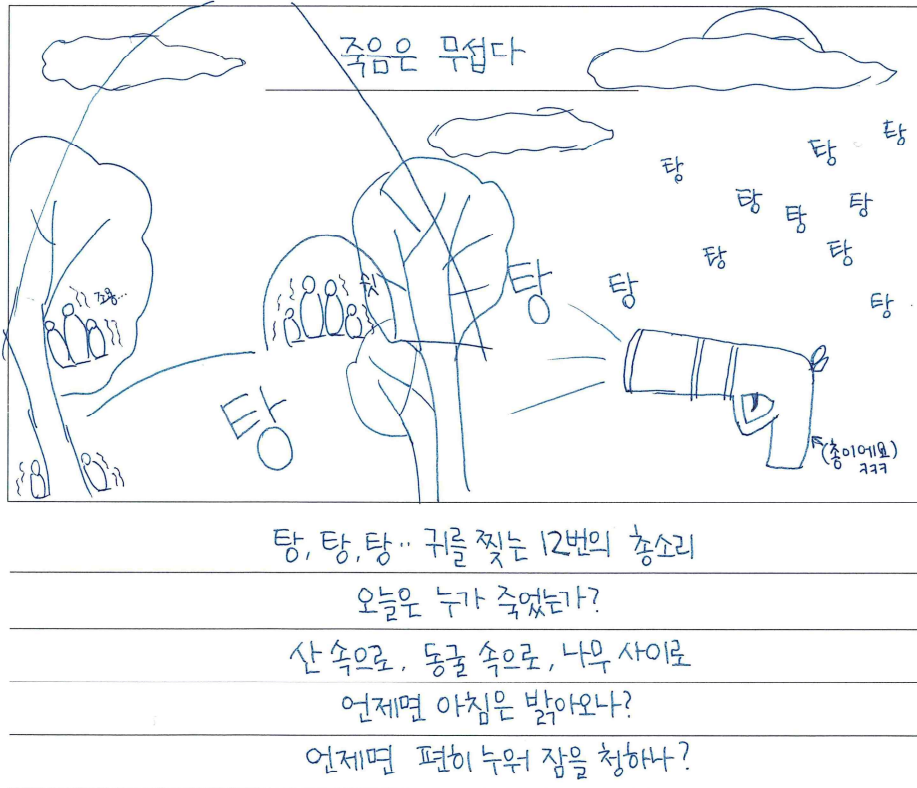 죽음은 무섭다
탕
탕
탕
탕
탕
탕
탕
탕
탕
조용...
쉿
탕
탕
탕
(총이에요)
ㅋㅋㅋ
탕, 탕, 탕.. 귀를 찢는 12번의 총소리
오늘은 누가 죽었는가?
산 속으로, 동굴 속으로, 나무 사이로
언제면 아침은 밝아오나?
언제면 편히 누워 잠을 청하나?